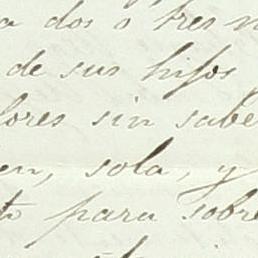 a dos o tres
de sus hijos
lores sin sabe
en, sola, y
to para sobre